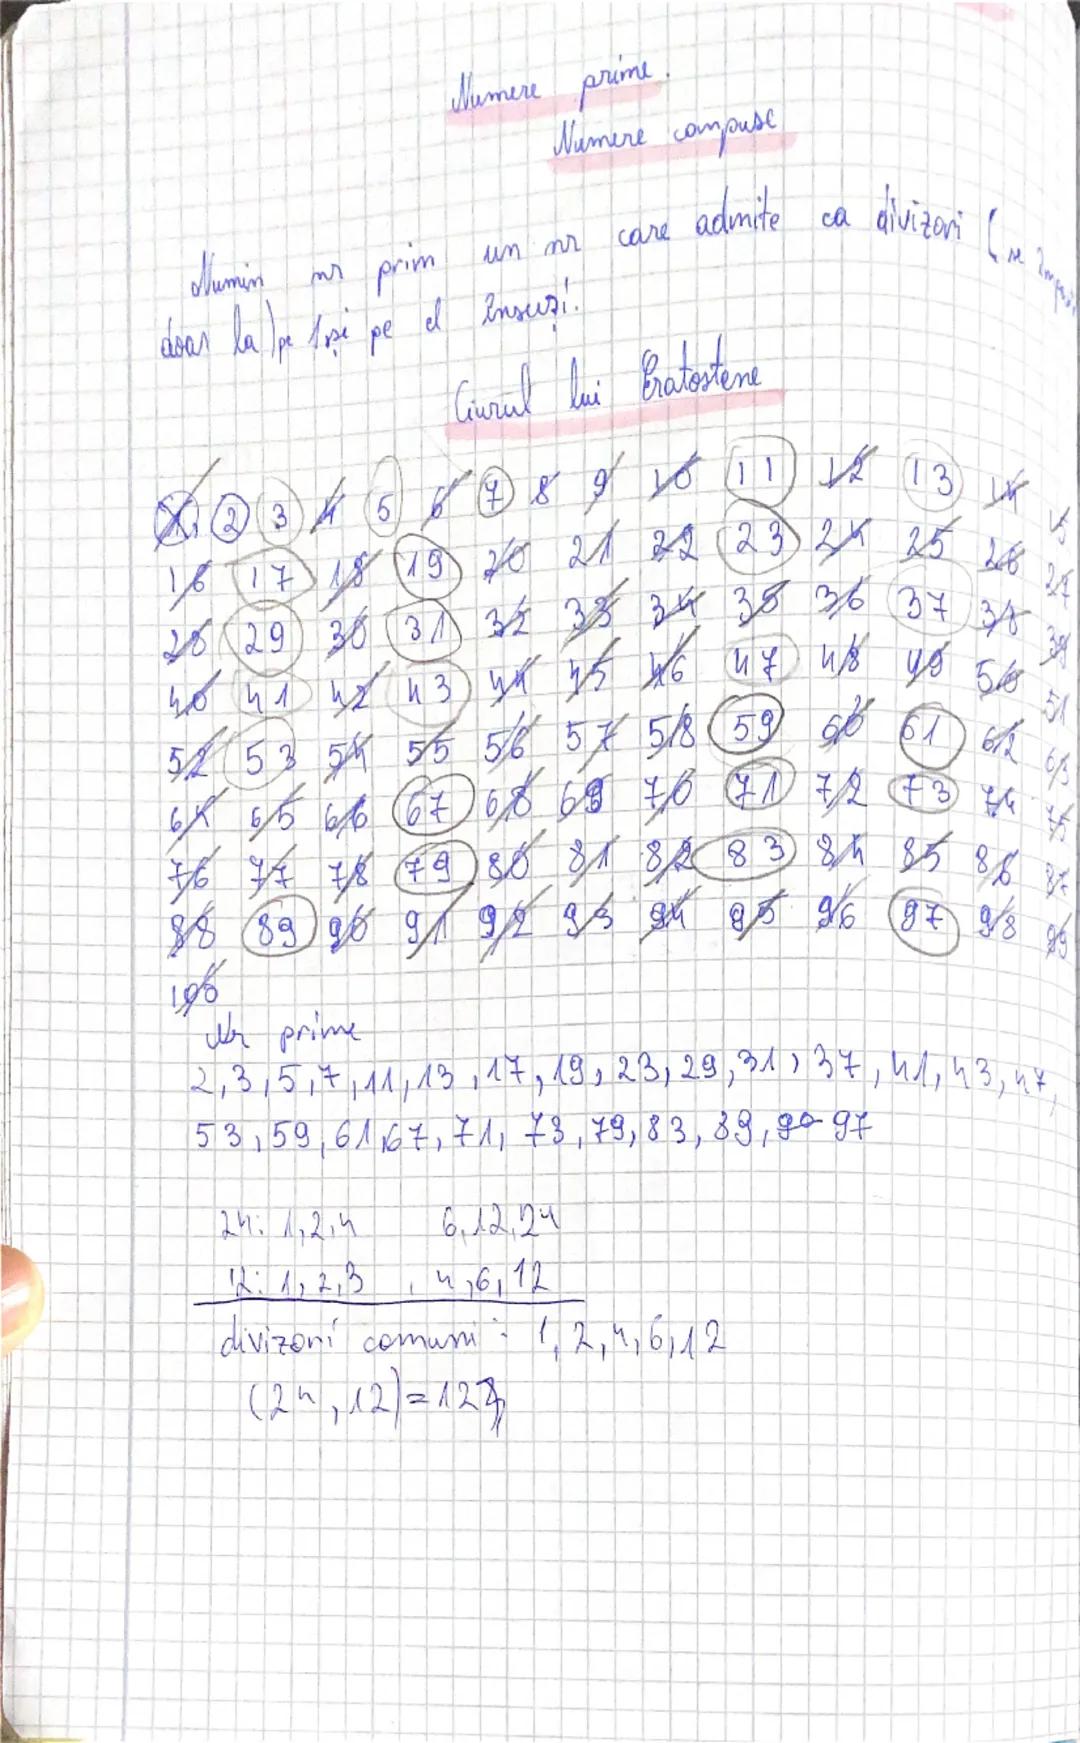 Numere prime.
Numere compuse
Numim nr prim un nr care admite ca divizori (se
doar la) pe 1 și pe el însuși.
Ciurul lui Eratostene
1, 2 3 4 5 6 7 8 9 10 11 12 13 14 15
16 17 18 19 20 21 22 23 24 25 26 27
28 29 30 31 32 33 34 35 36 37 38 39
40 41 42 43 44 45 46 47 48 49 50 51
52 53 54 55 56 57 58 59 60 61 62 63
64 65 66 67 68 69 70 71 72 73 74 75
76 77 78 79 80 81 82 83 84 85 86 87
88 89 90 91 92 93 94 95 96 97 98 99
100
Nr prime
2, 3, 5, 7, 11, 13, 17, 19, 23, 29, 31, 37, 41, 43, 47,
53, 59, 61, 67, 71, 73, 79, 83, 89, 97
24: 1, 2, 4 6, 12, 24
12: 1, 2, 3, 4, 6, 12
divizori comuni: 1, 2, 4, 6, 12
(24, 12) = 12